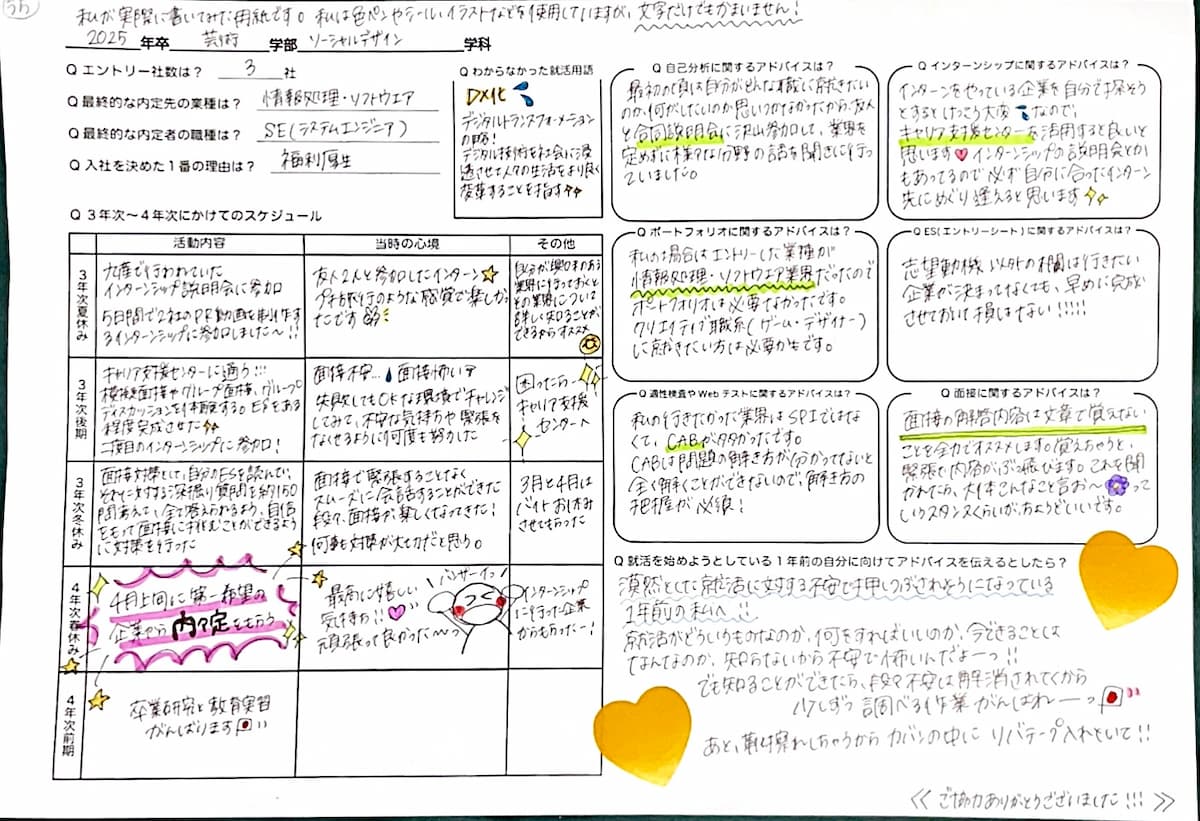 私が実際に書いてみた用紙です。私は色ペンやシール、イラストなどを使用していますが、文字だけでもかまいません！
2025 年卒 芸術 学部 ソーシャルデザイン 学科
Q エントリー社数は？ 3 社
Q 最終的な内定先の業種は？ 情報処理・ソフトウエア
Q 最終的な内定者の職種は？ SE(システムエンジニア)
Q 入社を決めた１番の理由は？ 福利厚生
Q わからなかった就活用語
DX化
デジタルトランスフォーメーション
の略！
デジタル技術を社会に浸
透させて人々の生活をより良く
変革することを指す
Q ３年次〜４年次にかけてのスケジュール
活動内容
当時の心境
その他
３年次夏休み
九産で行われていた
インターンシップ説明会に参加
5日間で2社のPR動画を制作す
るインターンシップに参加しました〜！！
友人2人と参加したインターン
プチ旅行のような感覚で楽しか
ったです
自分が興味のある
業界に行っておくと
その業界について
詳しく知ることが
できるからオススメ
３年次後期
キャリア支援センターに通う!!!
模擬面接やグループ面接、グループ
ディスカッションを体験する。ESをある
程度完成させた
二度目のインターンシップに参加！
面接不安... 面接怖いァ
失敗してもOKな環境でチャレンジ
してみて、不安な気持ちや緊張を
なくせるように何度も努力した
困ったらー
キャリア支援
センターへ
３年次冬休み
面接対策として、自分のESを読んで、
それに対する深掘り質問を約150
問考えて、全て答えられるよう、自信
をもって面接に挑むことができるよう
に対策を行った
面接で緊張することなく
スムーズに会話することができた
段々、面接が楽しくなってきた！
何事も対策が大切だと思う。
3月と4月は
バイトお休み
させてもらった
４年次春休み
4月上旬に第一希望の
企業から内々定をもらう
最高に嬉しい
気持ち!!
頑張って良かった〜っ
バンザーイっ
インターンシップ
に行った企業
からもらったー！
４年次前期
卒業研究と教育実習
がんばります
Q 自己分析に関するアドバイスは？
最初の頃は自分がどんな職に就きたい
のか、何がしたいのか思いつかなかったから、友人
と合同説明会に沢山参加して、業界を
定めずに様々な分野の話を聞きに行っ
ていました。
Q インターンシップに関するアドバイスは？
インターンをやっている企業を自分で探そう
とするとけっこう大変なので、
キャリア支援センターを活用すると良いと
思います インターンシップの説明会とか
もあってるので必ず自分に合ったインターン
先にめぐり逢えると思います
Q ポートフォリオに関するアドバイスは？
私の場合はエントリーした業種が
情報処理・ソフトウエア業界だったので
ポートフォリオは必要なかったです。
クリエイティブ職系(ゲーム・デザイナー)
に就きたい方は必要かもです。
Q ES(エントリーシート)に関するアドバイスは？
志望動機以外の欄は行きたい
企業が決まってなくても、早めに完成
させておいて損はない!!!!!
Q 適性検査やWebテストに関するアドバイスは？
私の行きたかった業界はSPIではな
くて、CABが多かったです。
CABは問題の解き方が分かってないと
全く解くことができないので、解き方の
把握が必須！
Q 面接に関するアドバイスは？
面接の解答内容は文章で覚えない
ことを全力でオススメします。覚えちゃうと、
緊張で内容がぶっ飛びます。これを聞
かれたら、大体こんなこと言お〜って
いうスタンスくらいが、ちょうどいいです。
Q 就活を始めようとしている１年前の自分に向けてアドバイスを伝えるとしたら？
漠然とした就活に対する不安で押しつぶされそうになっている
1年前の私へ!!
就活がどういうものなのか、何をすればいいのか、今できることは
なんなのか、知らないから不安で怖いんだよーっ!!
でも知ることができたら、段々不安は解消されてくから
少しずつ調べる作業がんばれーーっ
あと、靴擦れしちゃうからカバンの中にリバテープ入れといて!!
≪ ご協力ありがとうございました!!! ≫